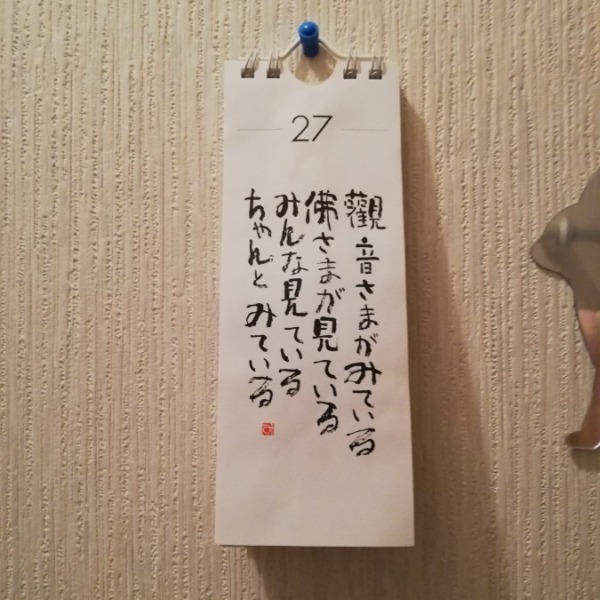 27
觀音さまがみている
佛さまが見ている
みんな見ている
ちゃんとみている